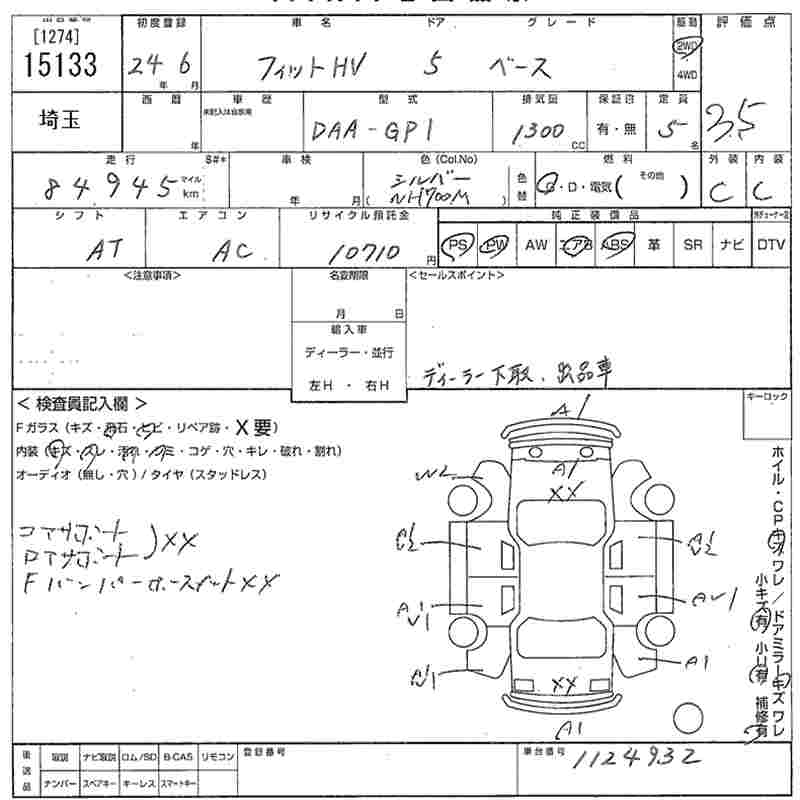 [1274]
15133
初度登録
24 年 6 月
車名 ドア グレード
フィットHV 5 ベース
駆動
2WD
4WD
評価点
3.5
埼玉
西暦
年
車歴
未記入は自家用
型式
DAA-GP1
排気量
1300 CC
保証書
有・無
定員
5 名
走行 S#*
84945 マイル km
車検
年 月
色(Col.No)
シルバー
( NH700M )
色替
燃料
G・D・電気( その他 )
外装
C
内装
C
シフト
AT
エアコン
AC
リサイクル預託金
10710 円
純正装備品
PS PW AW エアB ABS 革 SR ナビ DTV
<注意事項>
名変期限
月 日
輸入車
ディーラー・並行
左H・右H
<セールスポイント>
ディーラー下取、出品車
<検査員記入欄>
Fガラス(キズ・飛石・ヒビ・リペア跡・X要)
内装(キズ・スレ・汚れ・シミ・コゲ・穴・キレ・破れ・割れ)
オーディオ(無し・穴)/タイヤ(スタッドレス)
コアサポート
ロアサポート ) XX
FバンパーホースメントXX
キーロック
A1
A1
XX
W2
A1
XX
A1
AU1
A1
ホイル・CPキズワレ/ドアミラーキズワレ
小キズ有 小U有 補修有
後送品
取説 ナビ取説 ロム/SD B-CAS リモコン
ナンバー スペアキー キーレス スマートキー
登録番号
車台番号
1124932